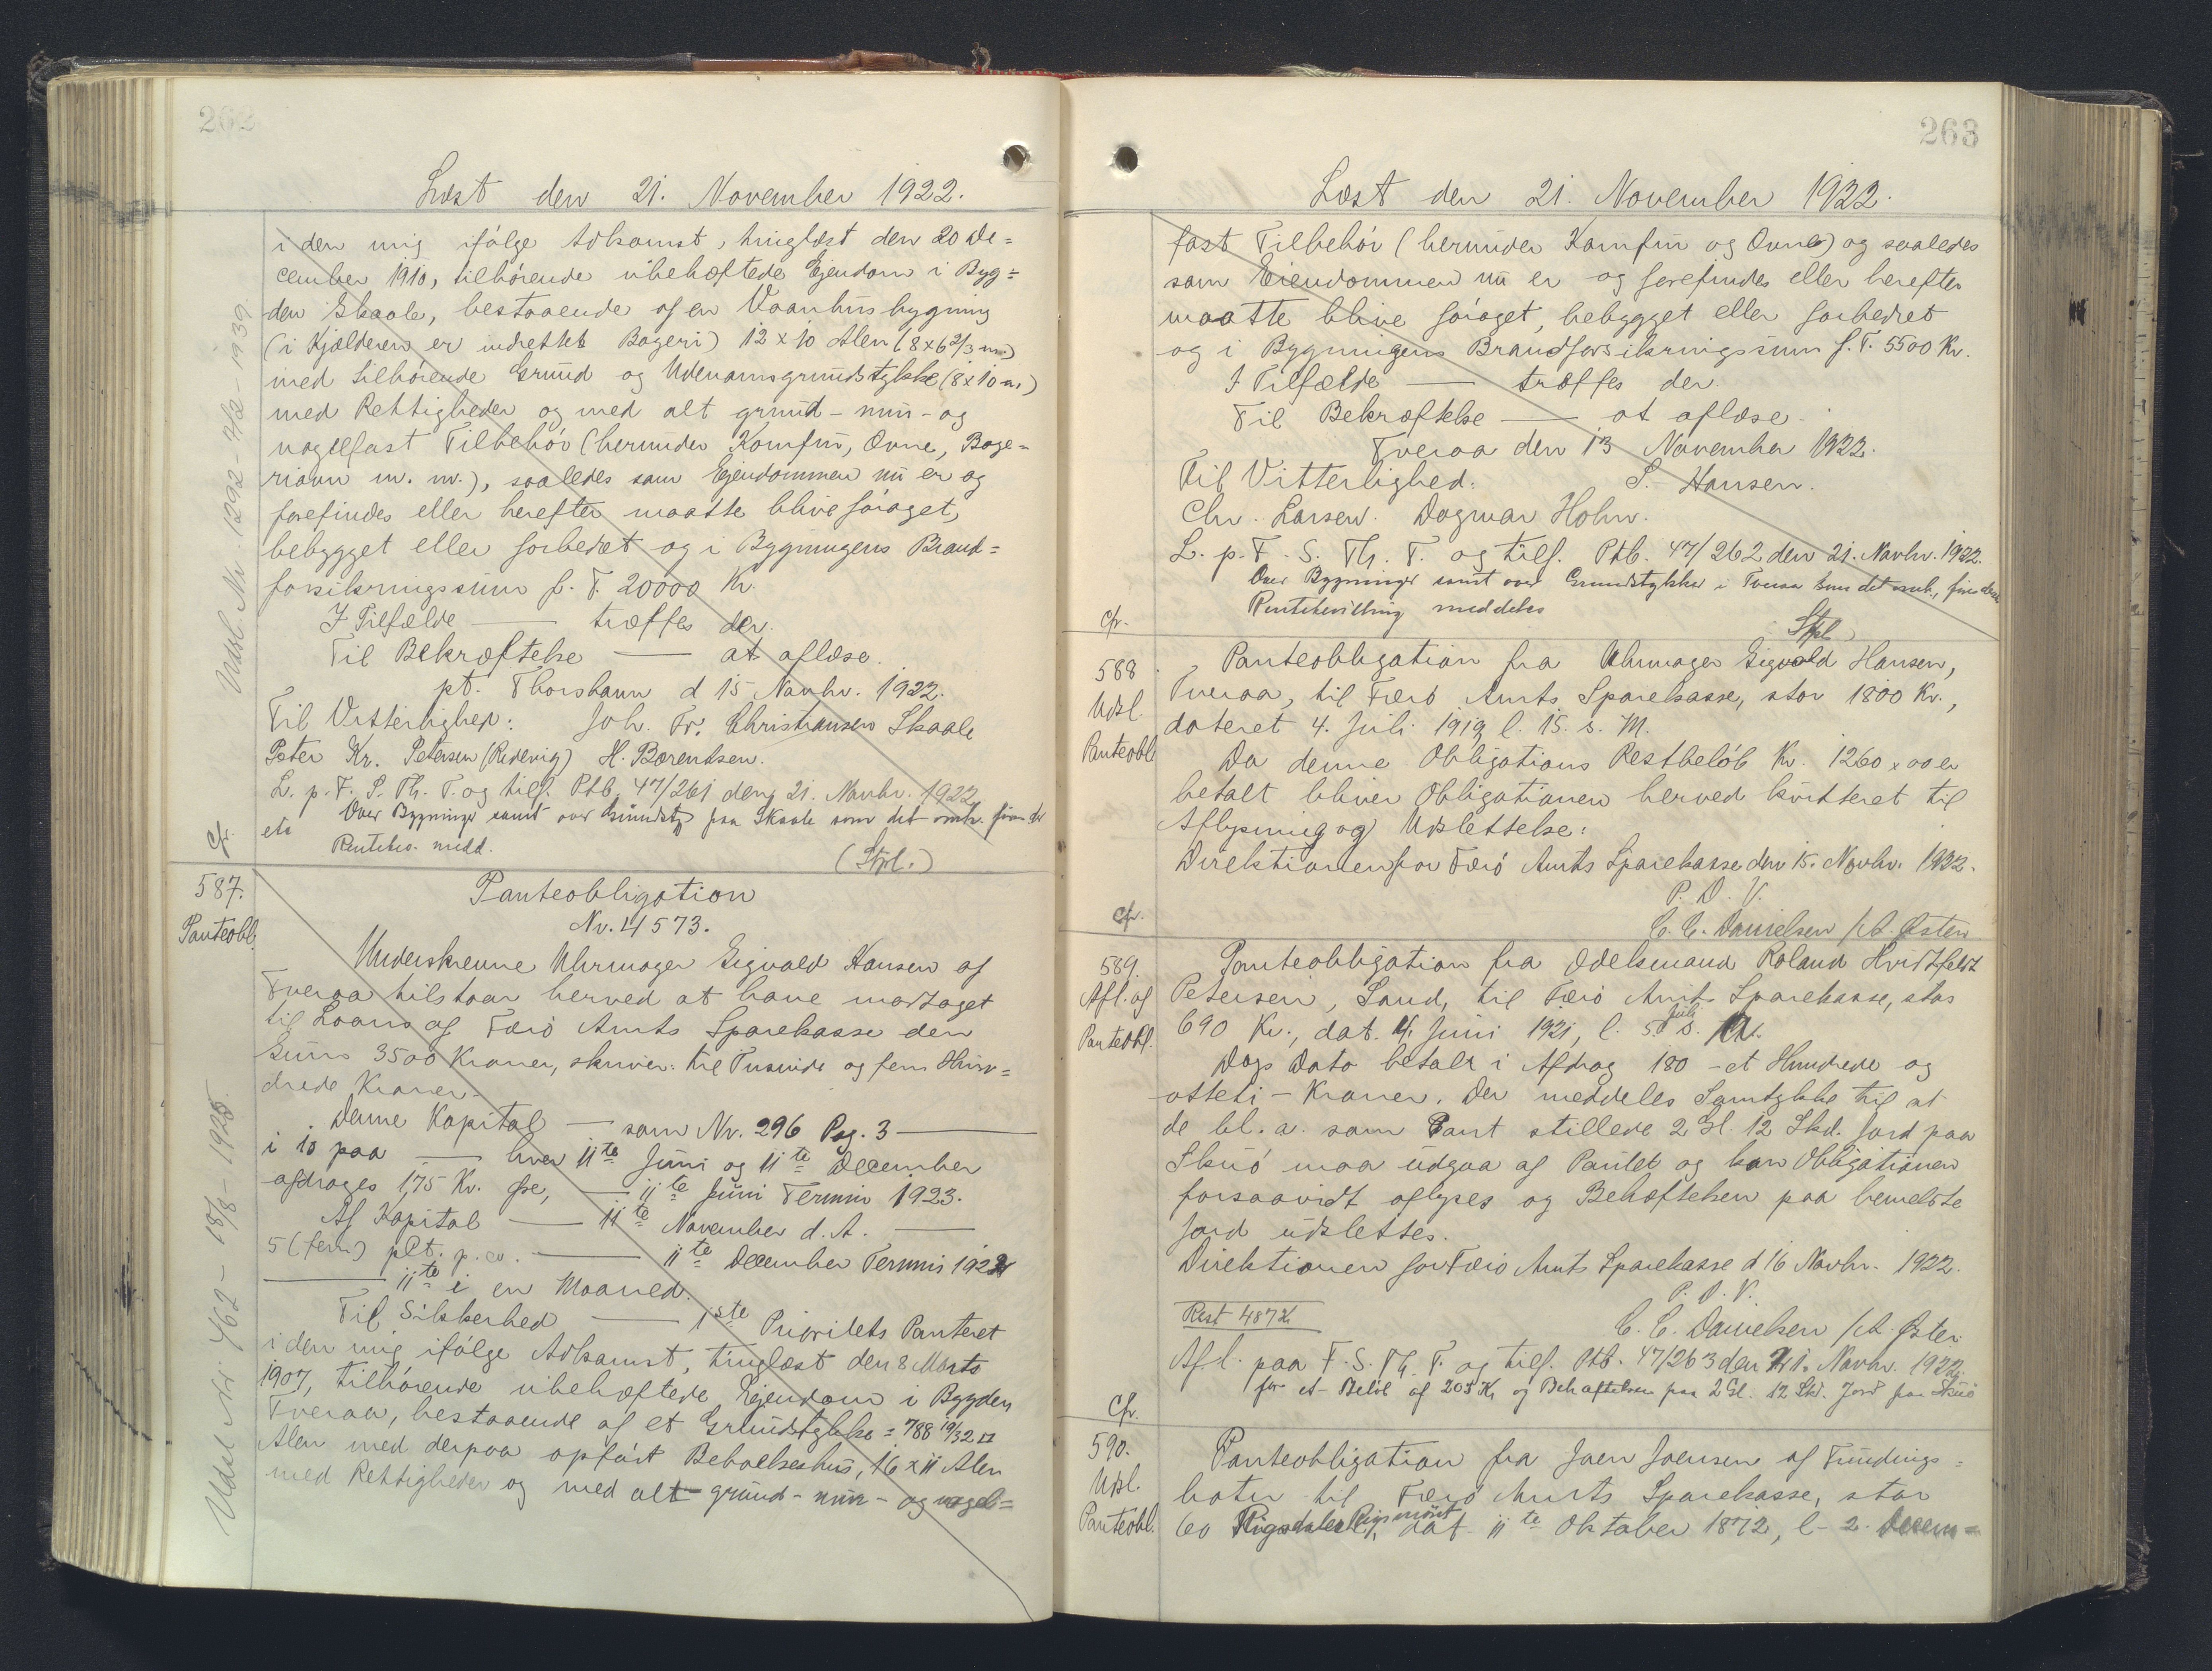 262
Læst den 21. November 1922.
i den mig ifølge Adkomst, thinglæst den 20 De=
cember 1910, tilhørende ubehæftede Ejendom i Byg=
den Skaale, bestaaende af en Vaanhusbygning
(i Kjælderen er indrettet Bageri) 12 x 10 Alen (8x6 2/3 m)
med tilhørende Grund og Udenomsgrundstykke (8x10 a.)
med Rettigheder og med alt grund- mur- og
nagelfast Tilbehør (herunder Komfur, Ovne, Bage=
riovn m. m.), saaledes som Ejendommen nu er og
forefindes eller herefter maatte blive forøget,
bebygget eller forbedret og i Bygningens Brand=
forsikringssum f. T. 20000 Kr.
I Tilfælde — træffes der.
Til Bekræftelse — at aflæse.
pt. Thorshavn d 15 Novbr. 1922.
Til Vitterlighed: Joh. Fr. Christiansen Skaale
Peter Kr. Petersen (Redevig) H. Børentsen.
L. p. F. S. Th. T. og tilf. Ptb. 47/261 den 21. Novbr. 1922
Over Bygninger samt over Grundst. paa Skaale som det omh. fires der
Cfr. ets Rentebev. medd.
(Stpl.)
Udsl. Nr. 1292 - 7/2 - 1939
587. Panteobligation
Panteobl. Nr. 4573.
Underskrevne Uhrmager Sigvald Hansen af
Tveraa tilstaar herved at have modtaget
til Laans af Færø Amts Sparekasse den
Sum 3500 Kroner, skriver: tre Tusinde og fem Hun=
drede Kroner.
Denne Kapital — som Nr. 296 Pag. 3 —
i 10 paa — hver 11te Juni og 11te December
afdrages 175 Kr. Øre, — 11te Juni Termin 1923.
Af Kapital — 11te November d. A. —
5 (fem) pCt. p. a. — 11te December Termin 1922
— 11te i en Maaned.
Til Sikkerhed — 1ste Prioritets Panteret
i den mig ifølge Adkomst, tinglæst den 8 Marts
1907, tilhørende ubehæftede Ejendom i Bygden
Tveraa, bestaaende af et Grundstykke = 788 19/32 □
Alen med derpaa opført Beboelseshus, 16 x 11 Alen
med Rettigheder og med alt grund- mur- og nagel=
Udsl. Nr. 462 - 18/8 - 1925.
263
Læst den 21. November 1922.
fast Tilbehør (herunder Komfur og Ovne) og saaledes
som Eiendommen nu er og forefindes eller herefter
maatte blive forøget, bebygget eller forbedret
og i Bygningens Brandforsikringssum f. T. 5500 Kr.
I Tilfælde — træffes der.
Til Bekræftelse — at aflæse.
Tveraa den 13 November 1922.
Til Vitterlighed: S. Hansen.
Chr. Larsen. Dagmar Holm.
L. p. F. S. Th. T. og tilf. Ptb. 47/262 den 21. Novbr. 1922.
Over Bygninger samt over Grundstykke i Tveraa som det omh., fires
Cfr. Rentebevilling meddeles
Stpl.
588. Panteobligation fra Uhrmager Sigvald Hansen,
Udsl. Tveraa, til Færø Amts Sparekasse, stor 1800 Kr.,
Panteobl dateret 4. Juli 1919 l. 15. s. M.
Da denne Obligations Restbeløb Kr. 1260 x 00 er
betalt bliver Obligationen herved kvitteret til
Aflysning og Udslettelse:
Direktionen for Færø Amts Sparekasse den 15. Novbr. 1922.
P. D. V.
Cfr. C. C. Danielsen / A. Østen
589. Panteobligation fra Odelsmand Roland Hvidtfeldt
Afl. af Petersen, Sand, til Færø Amts Sparekasse, stor
Panteobl. 690 Kr., dat. 4. Juni 1921, l. 5. Juli s. A.
Dags Dato betalt i Afdrag 180 - et Hundrede og
otteti - Kroner. Der meddeles Samtykke til at
de bl. a. som Pant stillede 2 Gl. 12 Skd. Jord paa
Skuø maa udgaa af Pantet og kan Obligationen
forsaavidt aflyses og Behæftelsen paa bemeldte
Jord udslettes.
Direktionen for Færø Amts Sparekasse d 16 Novbr. 1922.
P. D. V.
Rest 487 Kr
C. C. Danielsen / A. Østen
Afl. paa F. S. Th. T. og tilf. Ptb. 47/263 den 21. Novbr. 1922
for et Beløb af 203 Kr og Behæftelsen paa 2 Gl. 12 Skd. Jord paa Skuø
Cfr.
590. Panteobligation fra Joen Joensen af Fundings=
Udsl. botn til Færø Amts Sparekasse, stor
Panteobl. 60 Rigsdaler Rigsmønt, dat. 11te Oktober 1872, l. 2. Decem=